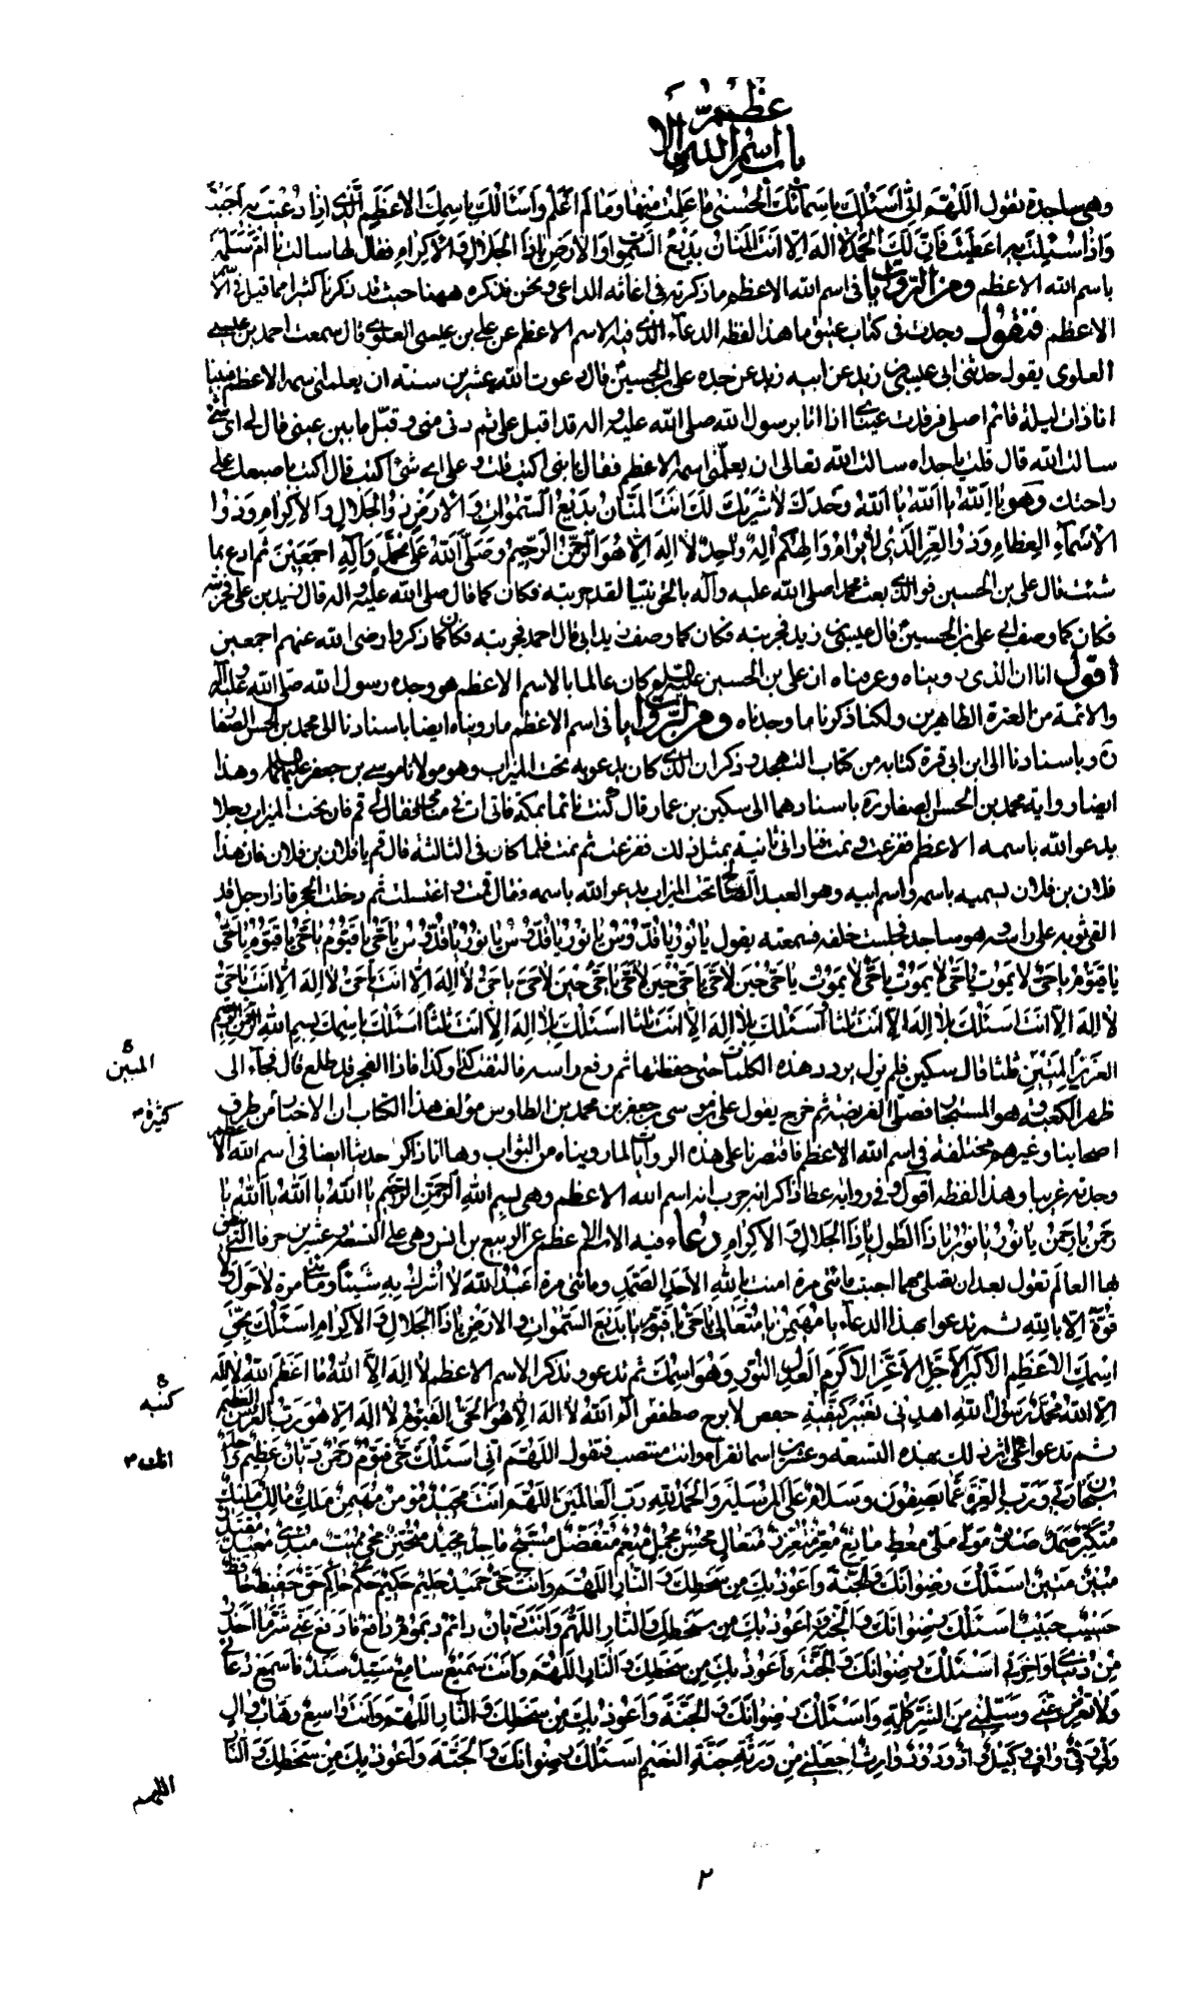 عظم
باب اسم الله الا
وهى ساجدة تقول اللهم انى اسئلك باسمائك الحسنى ما علمت منها وما لم اعلم واسئالك باسمك الاعظم الذى اذا دعيت به اجبت
واذا سئلت به اعطيت فان لك الحمد لا اله الا انت المنان بديع السموات والارض يا ذا الجلال والاكرام فقال لها سالت يا ام سلمة
باسم الله الاعظم ومن الروايات فى اسم الله الاعظم ما ذكرته فى اغاثة الداعى ونحن نذكره ههنا حيث قد ذكرنا كثيرا مما قيل فى
الاعظم فنقول وجدت فى كتاب عتيق ما هذا لفظه الدعاء الذى فيه الاسم الاعظم عن على بن عيسى العلوى قال سمعت احمد بن عيسى
العلوى يقول حدثنى ابى عيسى بن زيد عن ابيه زيد عن جده على بن الحسين قال دعوت الله عشرين سنة ان يعلمنى اسمه الاعظم فبينا
انا ذات ليلة قائم اصلى فرقدت عيناى اذا انا برسول الله صلى الله عليه واله قد اقبل على ثم دنى منى وقبل ما بين عينى وقال لى اى شئ
سالت الله قال قلت يا جداه سالت الله تعالى ان يعلمنى اسمه الاعظم فقال يا بنى اكتب قلت وعلى اى شئ اكتب قال اكتب باصبعك على
راحتك وهو يا الله يا الله يا الله وحدك لا شريك لك انت المنان بديع السموات والارض ذو الجلال والاكرام وذو
الاسماء العظام وذو العز الذى لا يرام والهكم اله واحد لا اله الا هو الرحمن الرحيم وصلى الله على محمد وآله اجمعين ثم ادع بما
شئت قال على بن الحسين فوالذى بعث محمدا صلى الله عليه وآله بالحق نبيا لقد جربته فكان كما قال صلى الله عليه واله قال زيد بن على فجربته
فكان كما وصف ابى على بن الحسين قال عيسى بن زيد فجربته فكان كما وصف زيد ابى قال احمد فجربته فكان كما ذكروا رضى الله عنهم اجمعين
اقول انا ان الذى رويناه وعرفناه ان على بن الحسين عليه السلم كان عالما بالاسم الاعظم هو وجده رسول الله صلى الله عليه واله
والائمة من العترة الطاهرين ولكنا ذكرنا ما وجدناه ومن الروايات فى اسم الاعظم ما رويناه ايضا باسنادنا الى محمد بن الحسن الصفا
ر وباسنادنا الى ابن ابى قرة كتابه من كتاب التهجد وذكر ان الذى كان يدعو به تحت الميزاب وهو مولانا موسى بن جعفر عليهما السلم وهذا
ايضا رواية محمد بن الحسن الصفار باسنادهما الى سكين بن عمار قال كنت نائما بمكة فاتانى ات فى منامى فقال لى قم فان تحت الميزاب رجلا
يدعو الله باسمه الاعظم ففزعت ونمت فنادانى ثانية بمثل ذلك ففزعت ثم نمت فلما كان فى الثالثة قال قم يا فلان بن فلان فان هذا
فلان بن فلان يسميه باسمه واسم ابيه وهو العبد الصالح تحت الميزاب يدعو الله باسمه فقال قمت واغتسلت ثم دخلت الحجر فاذا رجل قد
القى ثوبه على راسه وهو ساجد فجلست خلفه فسمعته يقول يا نور يا قدوس يا نور يا قدوس يا نور يا قدوس يا حى يا قيوم يا حى يا قيوم يا حى
يا قيوم يا حى لا يموت يا حى لا يموت يا حى لا يموت يا حى حين لا حى يا حى حين لا حى يا حى حين لا حى يا حى لا اله الا انت يا حى لا اله الا انت يا حى
لا اله الا انت اسئلك بلا اله الا انت ثلثا اسئلك بلا اله الا انت ثلثا اسئلك بلا اله الا انت ثلثا اسئلك باسمك بسم الله الرحمن الرحيم
العزيز المتين ثلثا قال سكين فلم يزل يردد هذه الكلمات حتى حفظتها ثم رفع راسه فالتفت كذا وكذا فاذا الفجر قد طلع قال فجاء الى
المبين
ظهر الكعبة وهو المستجار فصلى الفريضة ثم خرج يقول على بن موسى بن جعفر بن محمد بن الطاوس مؤلف هذا الكتاب ان الاخبار من طرق
كثيرة
اصحابنا وغيرهم مختلفة فى اسم الله الاعظم فاقتصرنا على هذه الروايات لما رويناه من الثواب وها انا ذاكر حديثا ايضا فى اسم الله الا
وجدته غريبا وهذا لفظه اقول وفى رواية عطا ذاكر انه جرب انه اسم الله الاعظم وهى بسم الله الرحمن الرحيم يا الله يا الله يا الله يا
رحمن يا رحمن يا نور يا نور يا ذا الطول يا ذا الجلال والاكرام دعاء فيه الاسم الاعظم عن الربيع بن انس وهى على التسعة وعشرين حرفا التى
بها العالم تقول بعد ان تصلى مهما احببت مائتى مرة امنت بالله الاحد الصمد ومائتى مرة اعبد الله لا اشرك به شيئا ومائتى مرة لا حول ولا
قوة الا بالله ثم تدعوا بهذا الدعاء يا مهيمن يا متعالى يا حى يا قيوم يا بديع السموات والارض يا ذا الجلال والاكرام اسئلك بحق
اسمك الاعظم الاكبر الاجل الاعز الاكرم العدل النور وهو اسمك ثم تدعو وتذكر الاسم الاعظم لا اله الا الله ما اعظم الله لا اله
الا الله محمد رسول الله
كتبه
ثم تدعوا على اثر ذلك بهذه التسعة وعشرين اسما تقرأه وانت منتصب فتقول اللهم انى اسئلك حى قيوم رحمن ديان عظيم واحد
سبحان ربك رب العزة عما يصفون وسلام على المرسلين والحمد لله رب العالمين اللهم انت مجيد مؤمن مهيمن ملك مالك مليك
متكبر صمد صادق مولى ملى معطى مانع معز متعزز متعال محسن مجمل منعم متفضل مسبح ماجد مجيد متحنن محى مميت مبدئ معيد مقتدر
مبين متين اسئلك رضوانك والجنة واعوذ بك من سخطك والنار اللهم وانت حى حميد حليم حكيم حكم حاكم حق حفيظ حافظ
حسيب حبيب اسئلك رضوانك والجنة واعوذ بك من سخطك والنار اللهم وانت ديان دائم ديموم دافع فادفع عنى شر ما احذر
من دنياى واخرتى اسئلك رضوانك والجنة واعوذ بك من سخطك والنار اللهم وانت سميع سامع سيد سند فاسمع دعائى
ولا تعرض عنى وسلمنى من الشر كله واسئلك رضوانك والجنة واعوذ بك من سخطك والنار اللهم وانت واسع وهاب وال
ولى وفى واف وكيل وادود ودود وارث اجعلنى من ورثة جنة النعيم اسئلك رضوانك والجنة واعوذ بك من سخطك والنار
اللهم
٢